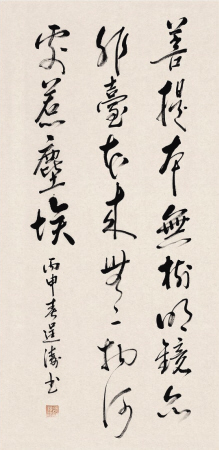 菩提本無樹明鏡亦
非臺本來無一物何
處惹塵埃
丙申春書